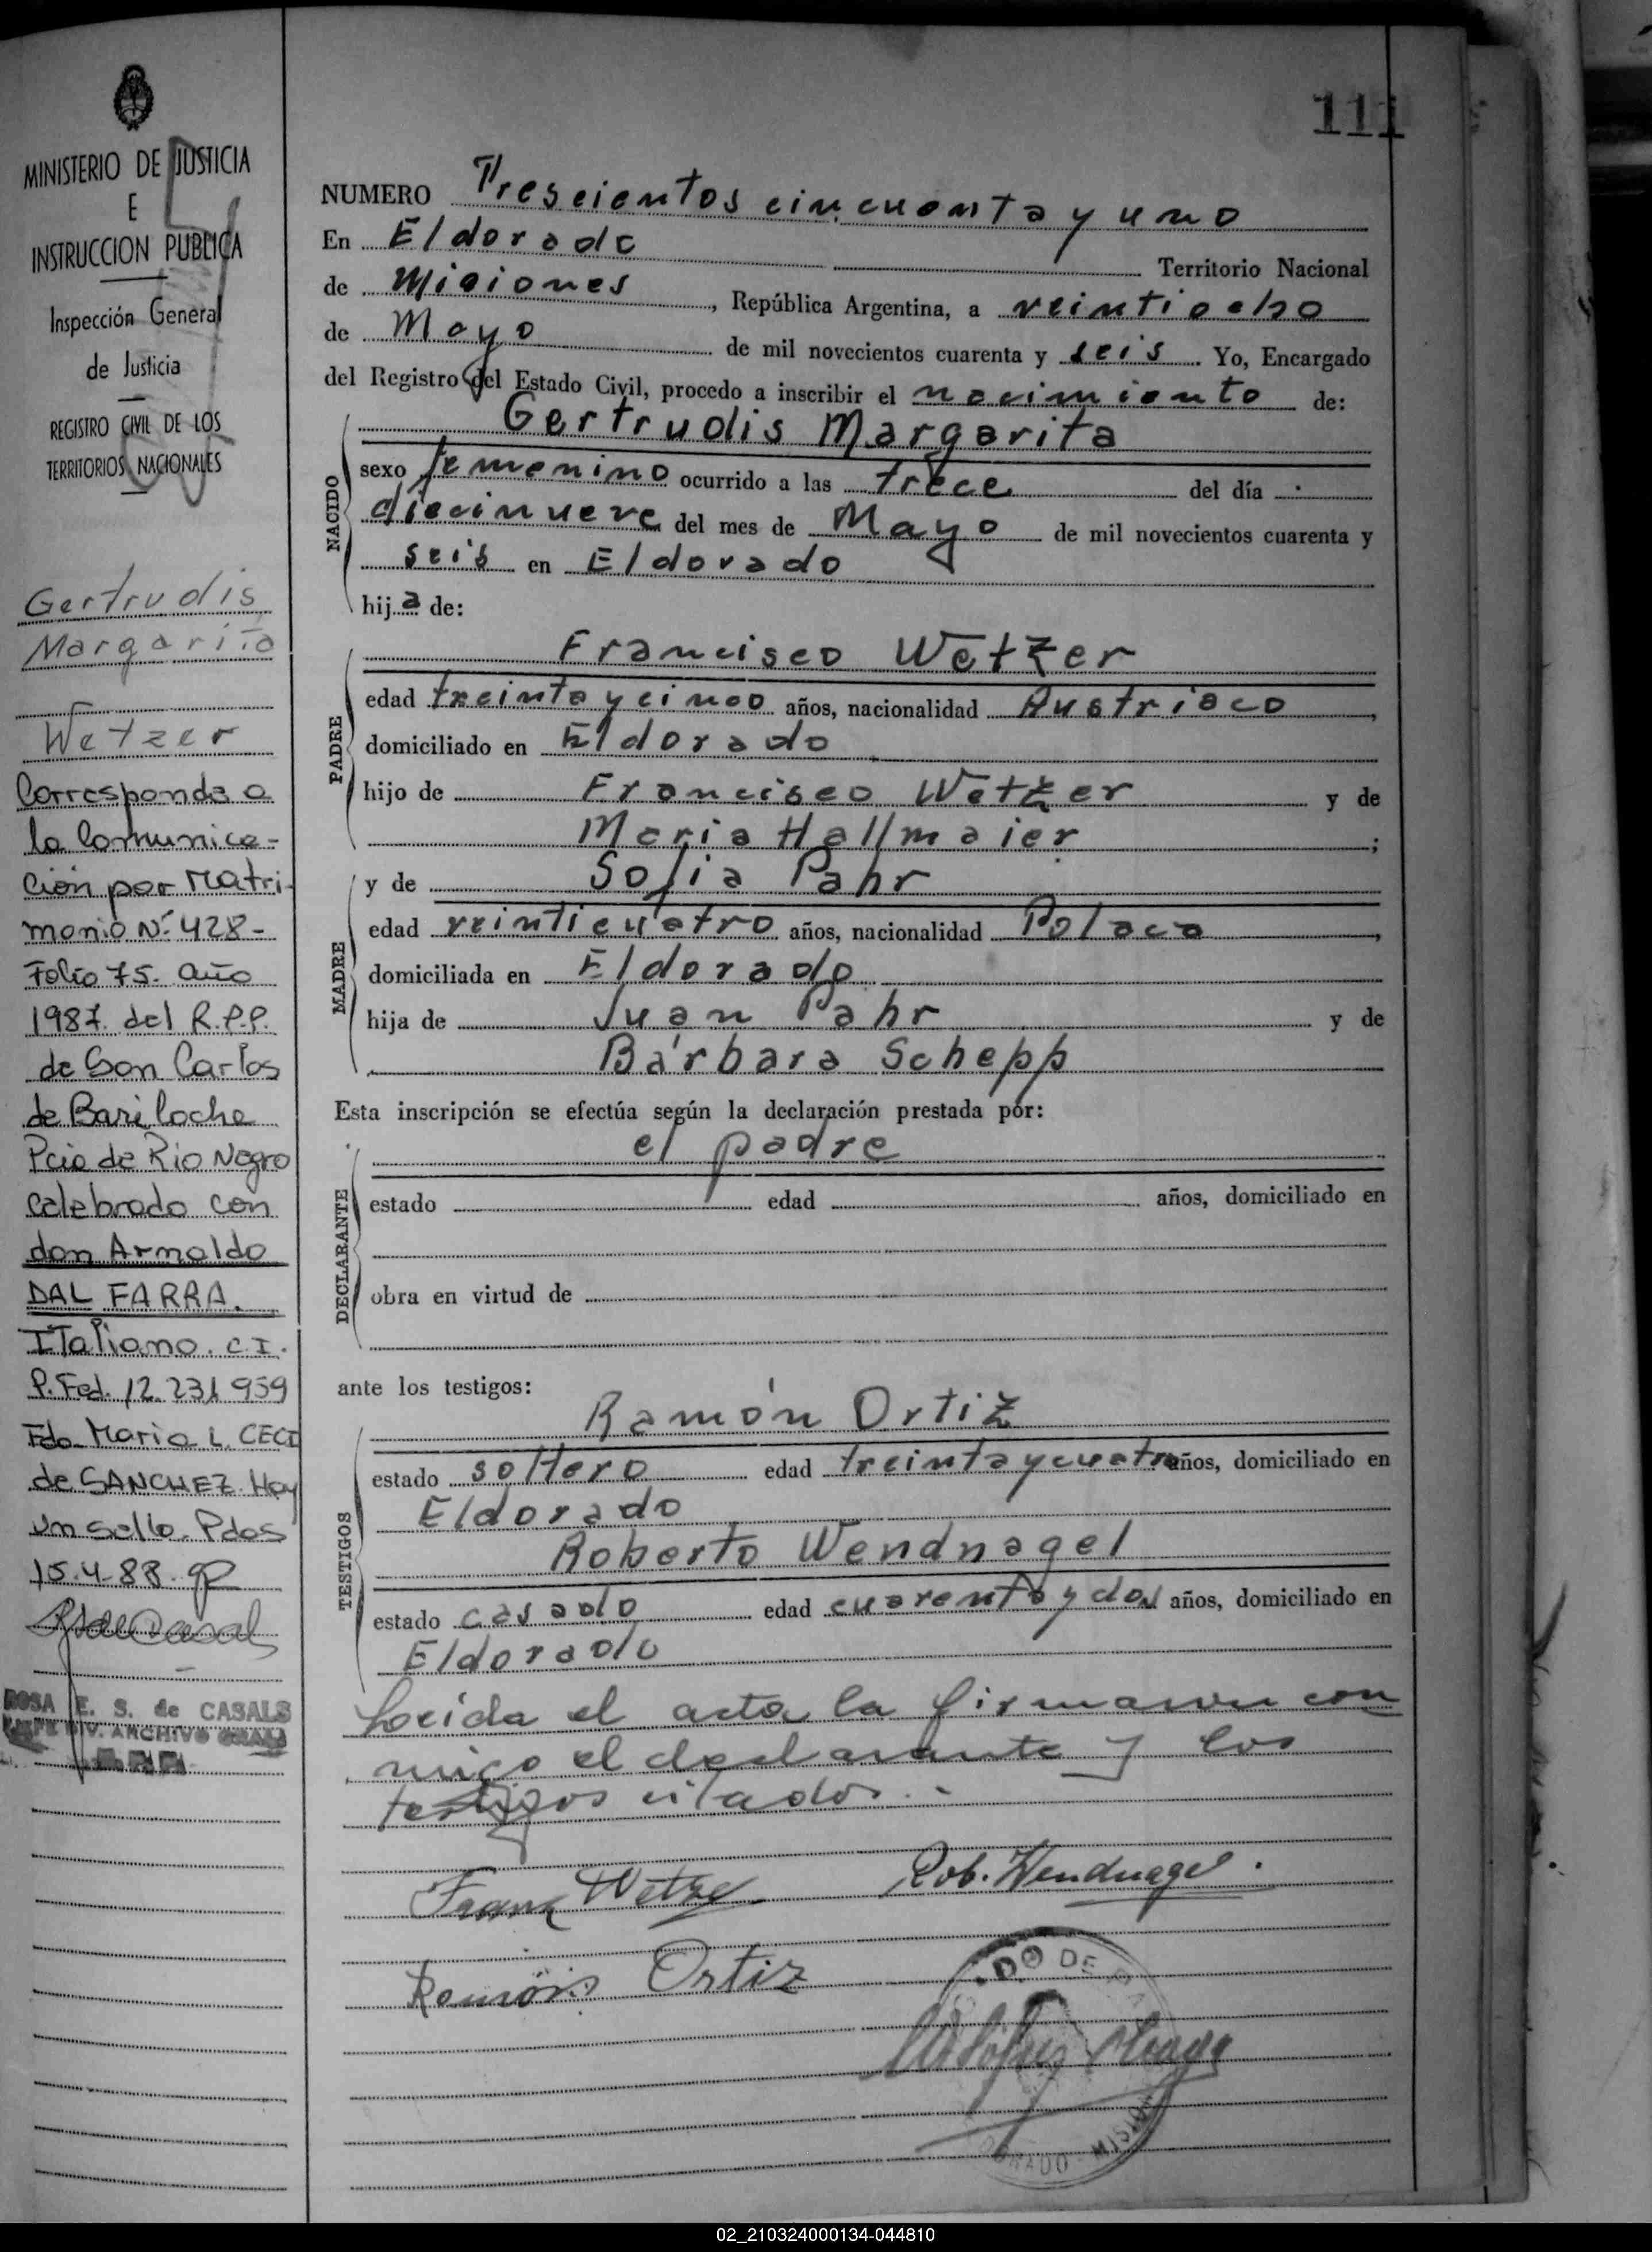 111
MINISTERIO DE JUSTICIA
E
INSTRUCCION PUBLICA
Inspección General
de Justicia
REGISTRO CIVIL DE LOS
TERRITORIOS NACIONALES
Gertrudis
Margarita
Wetzer
Corresponde a
la Comunica-
ción por Matri-
monio Nº 428-
Folio 75. año
1987. del R.P.P.
de San Carlos
de Bariloche
Pcia de Rio Negro
celebrado con
don Arnaldo
DAL FARRA.
ITaliano. C.I.
P. Fed. 12.231.959
Fdo. Maria L. CECI
de SANCHEZ. Hay
un sello. Pdas
15.4.88. gp
ROSA E. S. de CASALS
JEFE DIV. ARCHIVO GRAL
NUMERO Trescientos cincuenta y uno
En Eldorado Territorio Nacional
de Misiones, República Argentina, a veintiocho
de Mayo de mil novecientos cuarenta y seis. Yo, Encargado
del Registro del Estado Civil, procedo a inscribir el nacimiento de:
NACIDO
Gertrudis Margarita
sexo femenino ocurrido a las trece del día
diecinueve del mes de Mayo de mil novecientos cuarenta y
seis en Eldorado
hija de:
PADRE
Francisco Wetzer
edad treinta y cinco años, nacionalidad Austriaco,
domiciliado en Eldorado
hijo de Francisco Wetzer y de
Maria Hallmaier;
MADRE
y de Sofia Pahr
edad veinticuatro años, nacionalidad Polaca,
domiciliada en Eldorado
hija de Juan Pahr y de
Bárbara Schepp
Esta inscripción se efectúa según la declaración prestada por:
DECLARANTE
el padre
estado edad años, domiciliado en
obra en virtud de
ante los testigos:
TESTIGOS
Ramón Ortiz
estado soltero edad treinta y cuatro años, domiciliado en
Eldorado
Roberto Wendnagel
estado casado edad cuarenta y dos años, domiciliado en
Eldorado
Leida el acta la firmaron con
migo el declarante y los
testigos citados.-
Franz Wetzer
Rob. Wendnagel.
Ramón Ortiz
DO DE
MISION
02_210324000134-044810